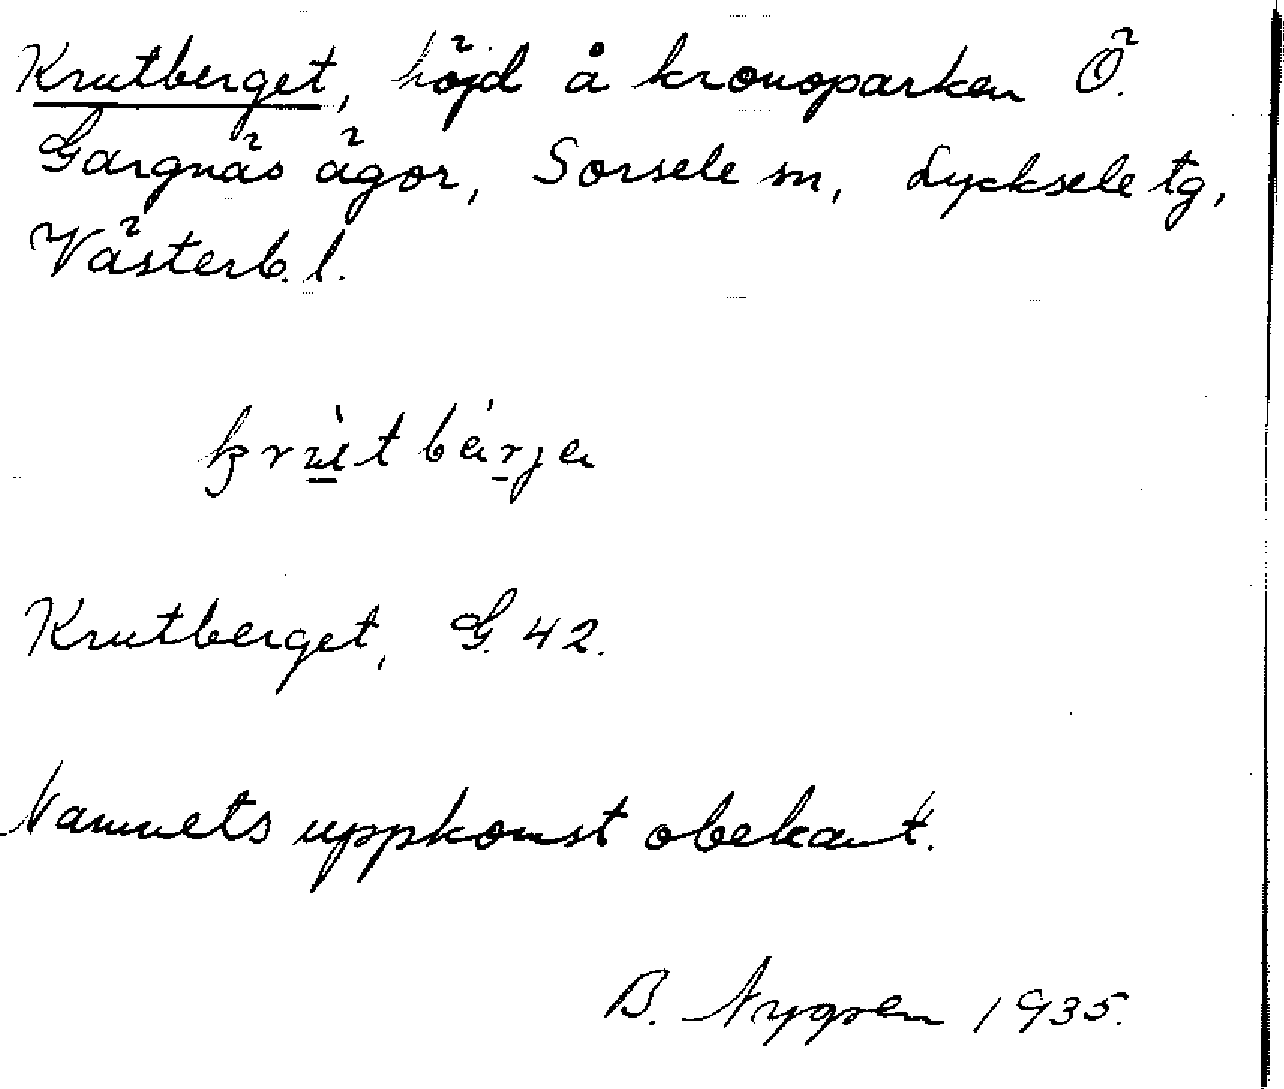 Krutberget, höjd å kronoparken Ö.
Gargnäs ägor, Sorsele sn, Lycksele tg,
Västerb. l.
Krutberget, G. 42.
Namnets uppkomst obekant.
B. Nygren 1935.